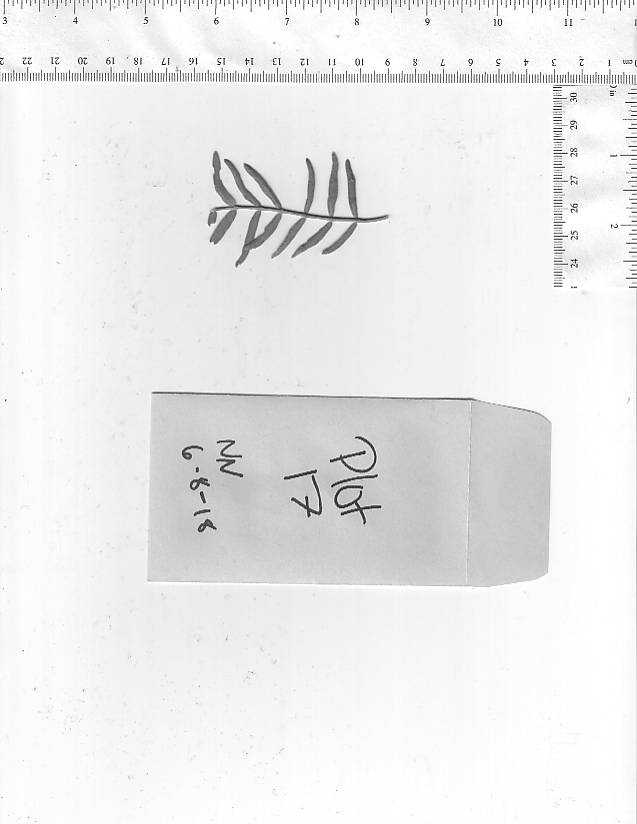 3 4 5 6 7 8 9 10 11
22 21 20 19 18 17 16 15 14 13 12 11 10 9 8 7 6 5 4 3 2 1 cm
in
30 29 28 27 26 25 24
1 2
Plot
17
NN
6-8-18